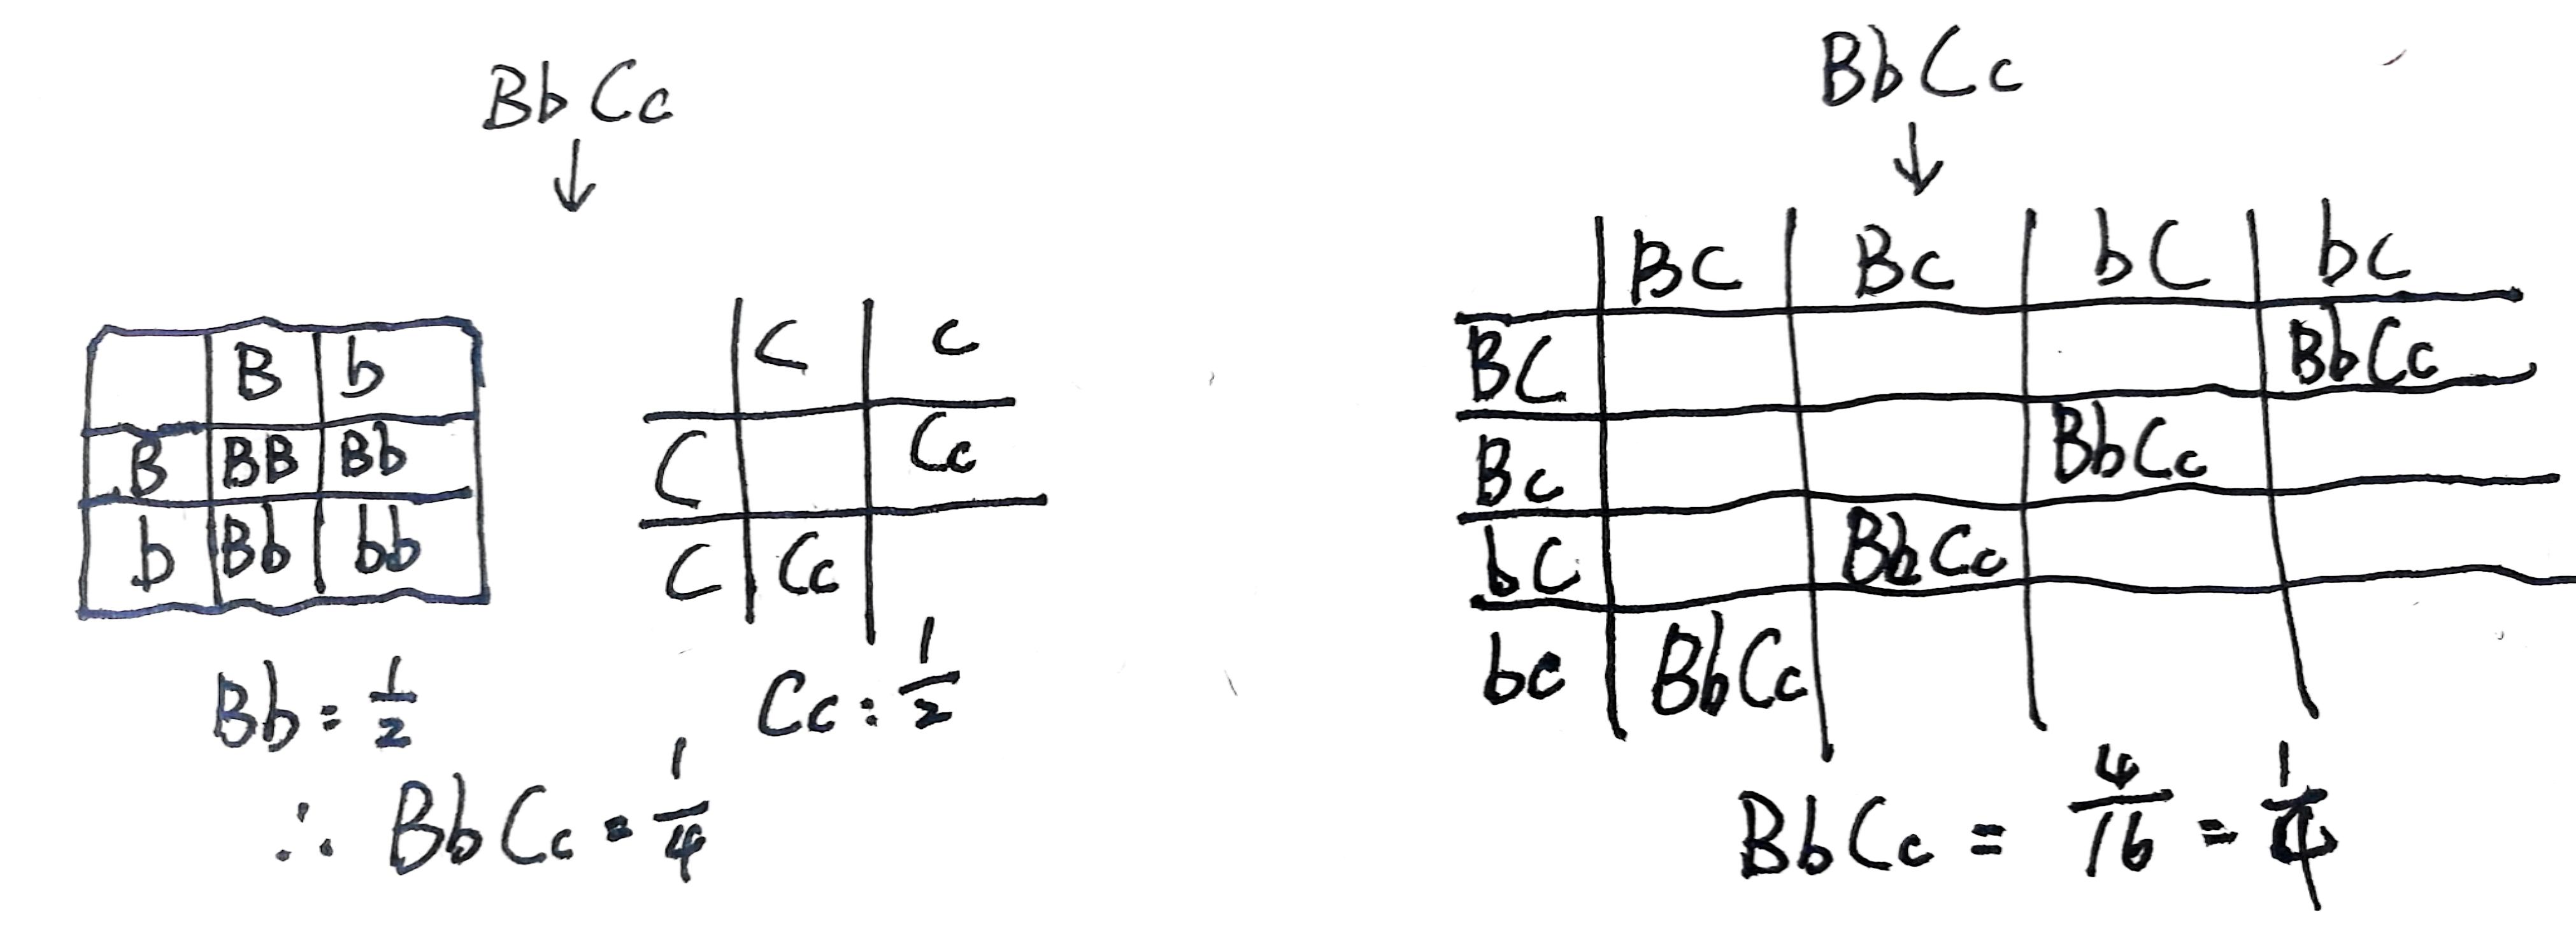 BbCc
↓
B b
B BB Bb
b Bb bb
C c
C Cc
C Cc
Bb = 1/2
Cc = 1/2
∴ BbCc = 1/4
BbCc
↓
BC Bc bC bc
BC BbCc
Bc BbCc
bC BbCc
bc BbCc
BbCc = 4/16 = 1/4